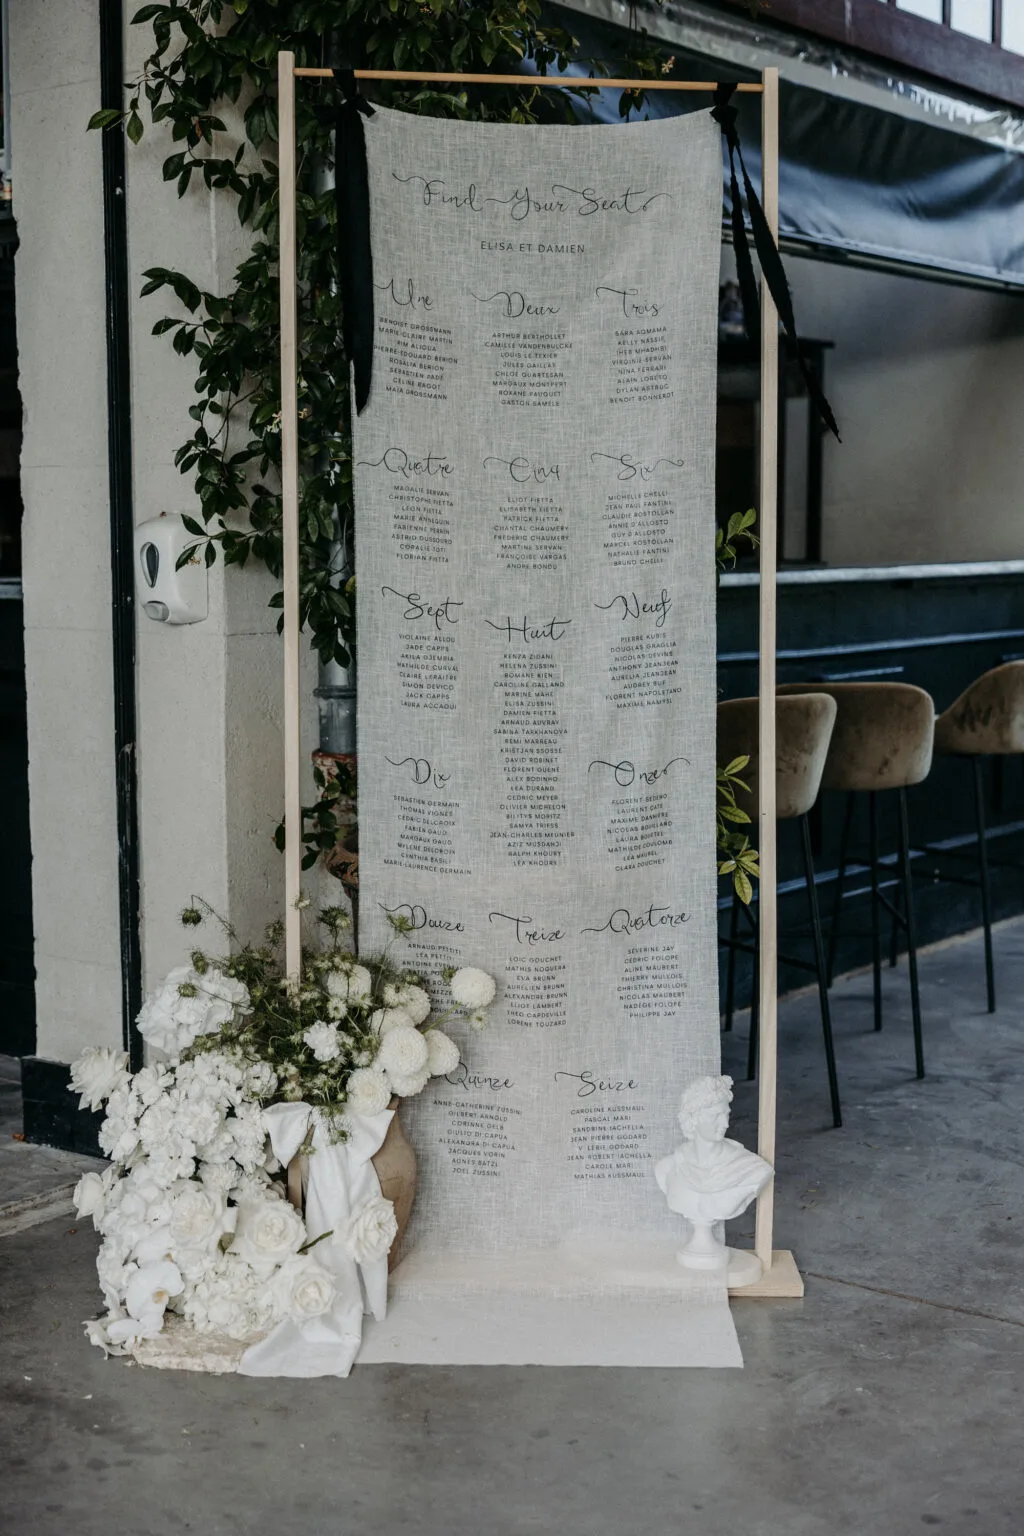 Find Your Seat
ELISA ET DAMIEN
Une
BENOIST GROSSMANN
MARIE-CLAIRE MARTIN
RIM ALIOUA
PIERRE-EDOUARD BERION
ROSALIA BERION
SEBASTIEN
CÉLINE BAGOT
MAIA GROSSMANN
Deux
ARTHUR BERTHOLLET
CAMILLE VANDENBULCKE
LOUIS LE TEXIER
JULES GAILLAT
CHLOÉ QUARTESAN
MARGAUX MONTPERT
ROXANE PAUQUET
GASTON SAMELE
Trois
SARA AQMAMA
KELLY NASSIF
IHEB MHADHBI
VIRGINIE SERVAN
NINA FERRARI
ALAIN LORETO
DYLAN ASTRUC
BENOIT BONNERDT
Quatre
MAGALIE SERVAN
CHRISTOPHE FIETTA
LÉON FIETTA
MARIE ANNEQUIN
FABIENNE PERRIN
ASTRID DUSSOURD
CORALIE TOTI
FLORIAN FIETTA
Cinq
ELIOT FIETTA
ELISABETH FIETTA
PATRICK FIETTA
CHANTAL CHAUMERY
FREDERIC CHAUMERY
MARTINE SERVAN
FRANÇOISE VARGAS
ANDRE BONDU
Six
MICHELLE CHELLI
JEAN PAUL FANTINI
CLAUDIE ROSTOLLAN
ANNIE D'ALLOSTO
GUY D'ALLOSTO
MARCEL ROSTOLLAN
NATHALIE FANTINI
BRUNO CHELLI
Sept
VIOLAINE ALLOU
JADE CAPPS
AKILA DJEMBIA
MATHILDE CURVAL
CLAIRE LERAITRE
SIMON DEVICO
JACK CAPPS
LAURA ACCAOUI
Huit
KENZA ZIDANI
HELENA ZUSSINI
ROMANE KIEN
CAROLINE GALLAND
MARINE MAHE
ELISA ZUSSINI
DAMIEN FIETTA
ARNAUD AUVRAY
SABINA TARKHANOVA
REMI MARREAU
KRISTJAN SSOSSE
DAVID ROBINET
FLORENT GUENE
ALEX BODINHO
LEA DURAND
CEDRIC MEYER
OLIVIER MICHELON
BILITYS MORITZ
SAMYA TRIESS
JEAN-CHARLES MEUNIER
AZIZ MUSDANJI
RALPH KHOURY
LEA KHOURY
Neuf
PIERRE KUBIS
DOUGLAS GRAGLIA
NICOLAS DEVINE
ANTHONY JEANJEAN
AURELIA JEANJEAN
AUDREY BUE
FLORENT NAPOLETANO
MAXIME NAMYSL
Dix
SEBASTIEN GERMAIN
THOMAS VIGNES
CEDRIC DELCROIX
FABIEN GAUD
MARGAUX GAUD
MYLENE DELCROIX
CYNTHIA BASILI
MARIE-LAURENCE GERMAIN
Onze
FLORENT SEDERO
LAURENT CATE
MAXIME DASHERE
NICOLAS BOUILLAND
LAURA
MATHILDE COULOMB
LEA MAUREL
CLARA DOUCHET
Douze
ARNAUD PETTITI
LEA PETTITI
ANTOINE
KATIA
Treize
LOIC GOUCHET
MATHIS NOGUERA
EVA BRUNN
AURELIEN BRUNN
ALEXANDRE BRUNN
ELIOT LAMBERT
THEO CAPDEVILLE
LORENE TOUZARD
Quatorze
SÉVERINE JAY
CEDRIC FOLOPE
ALINE MAUBERT
THIERRY MULLOIS
CHRISTINA MULLOIS
NICOLAS MAUBERT
NADÈGE FOLOPE
PHILIPPE JAY
Quinze
ANNE-CATHERINE ZUSSINI
GILBERT ARNOLD
CORINNE GELB
GIULIO DI CAPUA
ALEXANDRA DI CAPUA
JACQUES VORIN
AGNES BATZI
JOEL ZUSSINI
Seize
CAROLINE KUSSMAUL
PASCAL MARI
SANDRINE IACHELLA
JEAN PIERRE GODARD
V LERIE GODARD
JEAN-ROBERT IACHELLA
CAROLE MARI
MATHIAS KUSSMAUL